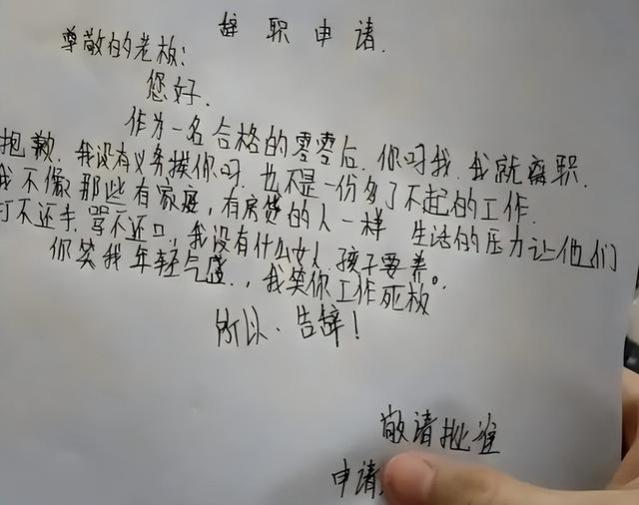 辞职申请.
尊敬的老板:
您好.
作为一名合格的零零后.你吗我.我就离职.
抱歉.我没有义务挨你吗.也不是一份多了不起的工作.
我不像那些有家庭,有房贷的人一样 生活的压力让他们
打不还手.骂不还口,我没有什么女人.孩子要养。
你笑我年轻气盛.,我笑你工作死板.
所以、告辞!
敬请批准
申请